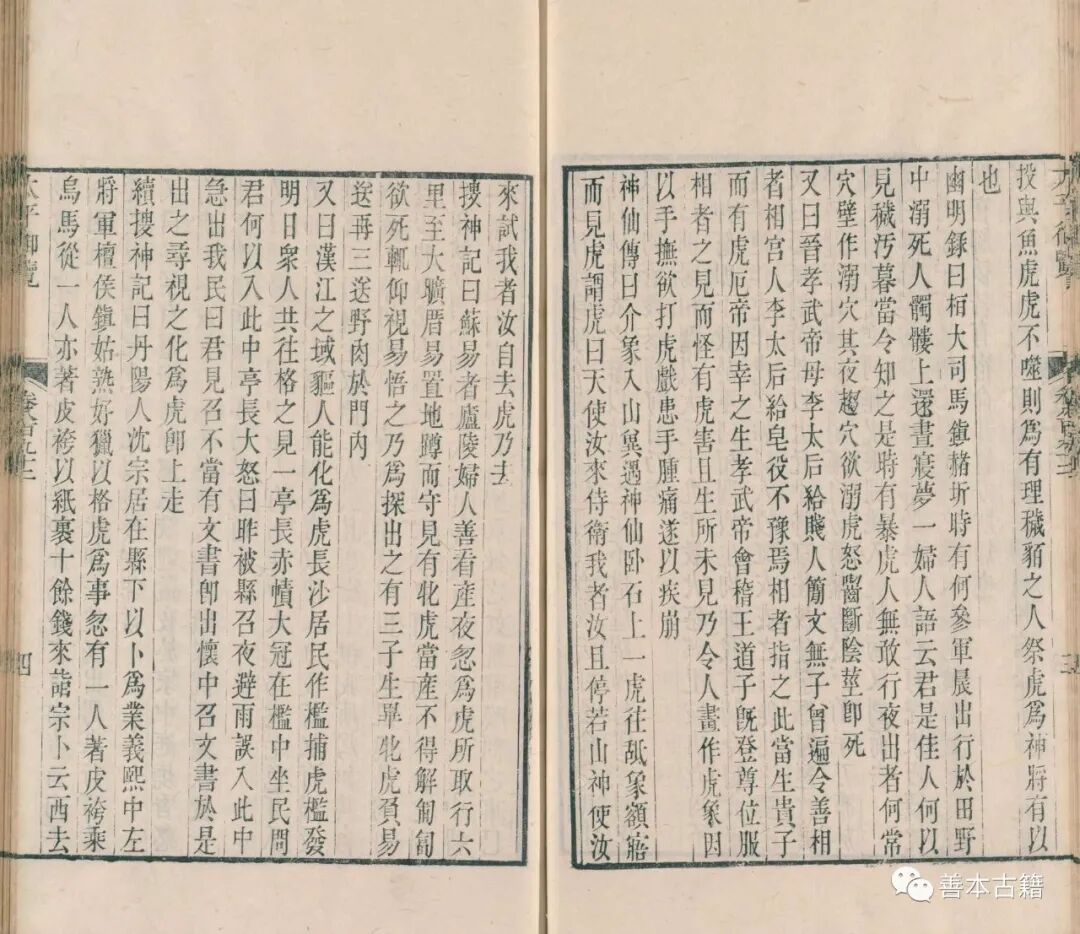 投與魚虎虎不噬則爲有理穢貊之人祭虎爲神將有以
也
幽明錄曰桓大司馬鎮赭圻時有何參軍晨出行於田野
中溺死人髑髏上還晝寢夢一婦人語云君是佳人何以
見穢汚暮當令知之是時有暴虎人無敢行夜出者何常
穴壁作溺穴其夜趨穴欲溺虎怒齧斷陰莖卽死
又曰晉孝武帝母李太后給賤人簡文無子曾遍令善相
者相宮人李太后給皂役不豫焉相者指之此當生貴子
而有虎厄帝因幸之生孝武帝會稽王道子旣登尊位服
相者之見而怪有虎害且生所未見乃令人畫作虎象因
以手撫欲打虎戲患手腫痛遂以疾崩
神仙傳曰介象入山巽遇神仙卧石上一虎往舐象額寤
而見虎謂虎曰天使汝來侍衛我者汝且停若山神使汝
三
來試我者汝自去虎乃去
搜神記曰蘇易者廬陵婦人善看產夜忽爲虎所取行六
里至大壙厝易置地蹲而守見有牝虎當產不得解匍匐
欲死輒仰視易悟之乃爲探出之有三子生畢牝虎負易
送再三送野肉於門內
又曰漢江之域貙人能化爲虎長沙居民作檻捕虎檻發
明日衆人共往格之見一亭長赤幘大冠在檻中坐民問
君何以入此中亭長大怒曰昨被縣召夜避雨誤入此中
急出我民曰君見召不當有文書卽出懷中召文書於是
出之尋視之化爲虎卽上走
續搜神記曰丹陽人沈宗居在縣下以卜爲業義熙中左
將軍檀侯鎮姑熟好獵以格虎爲事忽有一人著皮袴乘
烏馬從一人亦著皮袴以紙裹十餘錢來詣宗卜云西去
太平御覽
四
善本古籍